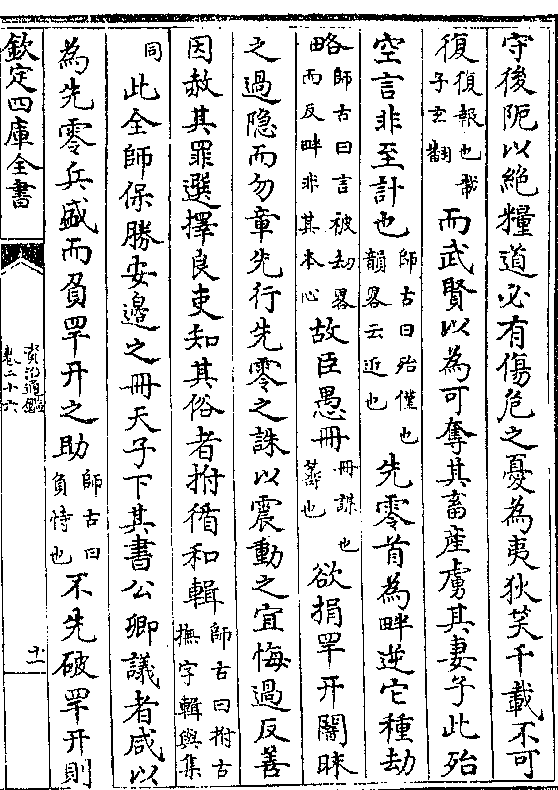 守後阨以絶糧道必有傷危之憂為夷狄笑千載不可
復復報也載子玄翻而武賢以為可奪其畜産虜其妻子此殆
空言非至計也師古曰殆僅也韻畧云近也先零首為畔逆它種劫
略師古曰言被劫畧而反畔非其本心故臣愚冊冊謀也筭也欲捐䍐幵闇昧
之過隐而勿章先行先零之誅以震動之宜悔過反善
因赦其罪選擇良吏知其俗者拊循和輯師古曰拊古撫字輯與集
同此全師保勝安邊之冊天子下其書公卿議者咸以
為先零兵盛而負䍐幵之助師古曰負恃也不先破䍐幵則
欽定四庫全書
資治通鑑
卷二十六
十一